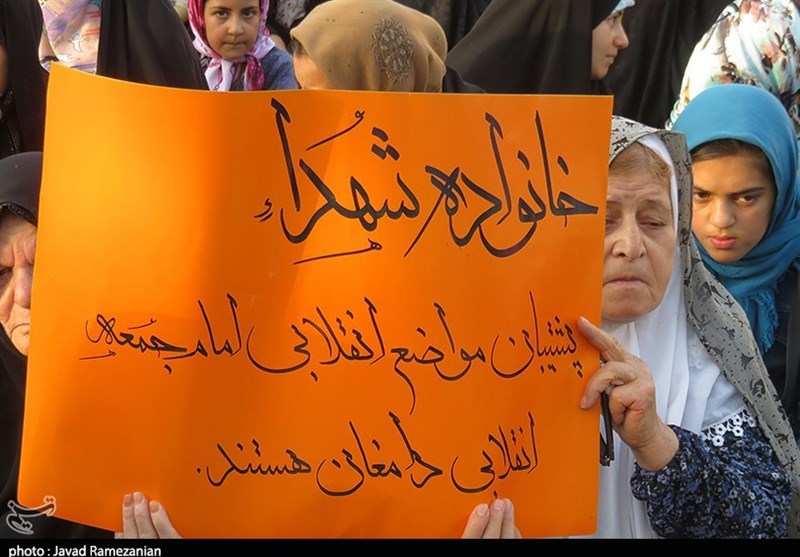 خانواده شهداء
پشتیبان مواضع انقلابی امام جمعه
انقلابی دامغان هستند.
تسنیم
photo : Javad Ramezanian